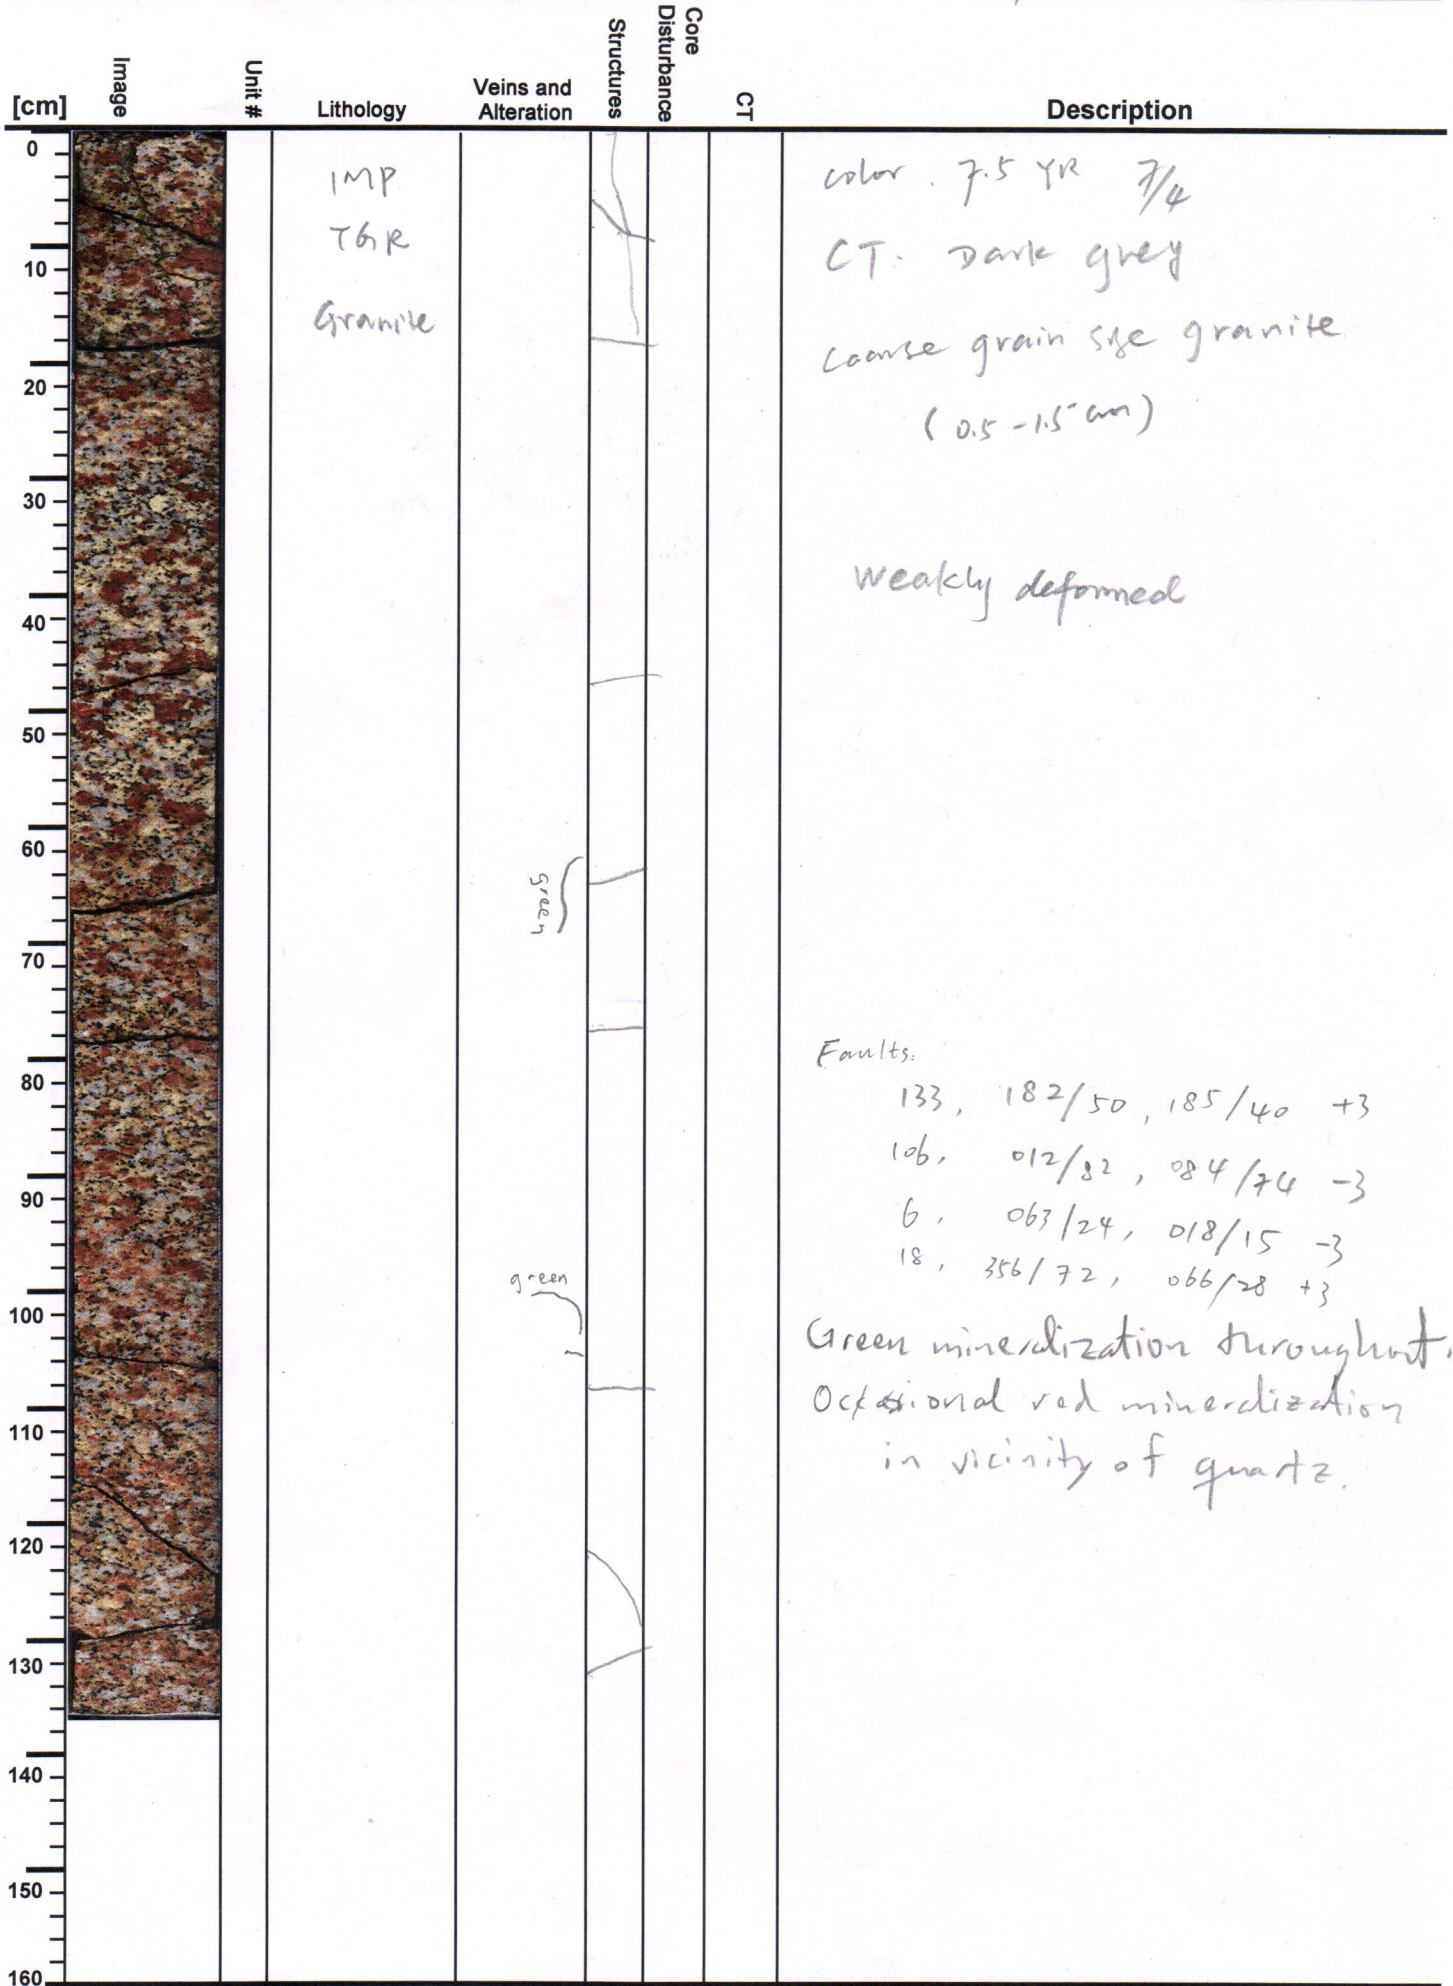 [cm]
Image
Unit #
Lithology
Veins and
Alteration
Structures
Core
Disturbance
CT
Description
0
10
20
30
40
50
60
70
80
90
100
110
120
130
140
150
160
IMP
TGR
Granite
green
green
color. 7.5 YR 7/4
CT. Dark grey
coarse grain size granite
(0.5 - 1.5 cm)
weakly deformed
Faults:
133, 182/50, 185/40 +3
106, 012/82, 084/74 -3
6, 063/24, 018/15 -3
18, 356/72, 066/28 +3
Green mineralization throughout.
Occasional red mineralization
in vicinity of quartz.